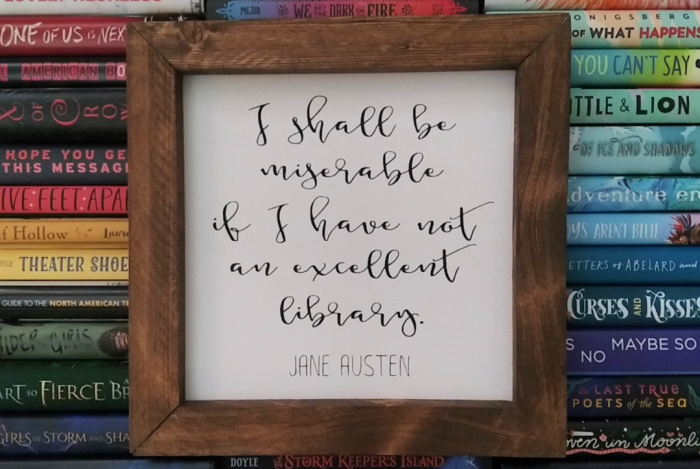 MEJIA WE THE DARK OF FIRE
ONE OF US IS NEX
AMERICAN
OF
HOPE YOU GE
THIS MESSAG
IVE FEET APAR
f Hollow
THEATER SHOE
GUIDE TO THE NORTH AMERICAN TE
ILDER GIRLS
ART SO FIERCE BR
GIRLS OF STORM AND SHA
I shall be
miserable
if I have not
an excellent
library.
JANE AUSTEN
ONIGSBERG
OF WHAT HAPPENS
YOU CAN'T SAY
TTLE & LION
OF ICE AND SHADOWS
dventure en
YS AREN'T BLUE
ETTERS of ABELARD and
CURSES AND KISSES
NO MAYBE SO
THE LAST TRUE
POETS of the SEA
oven in Moonli
DOYLE THE STORM KEEPER'S ISLAND